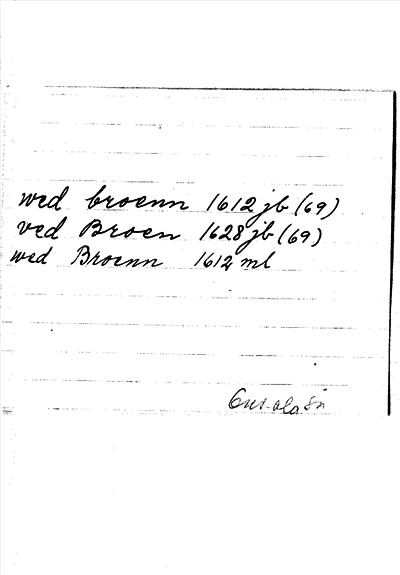 wed broenn 1612 jb (69)
ved Broen 1628 jb (69)
wed Broenn 1612 ml